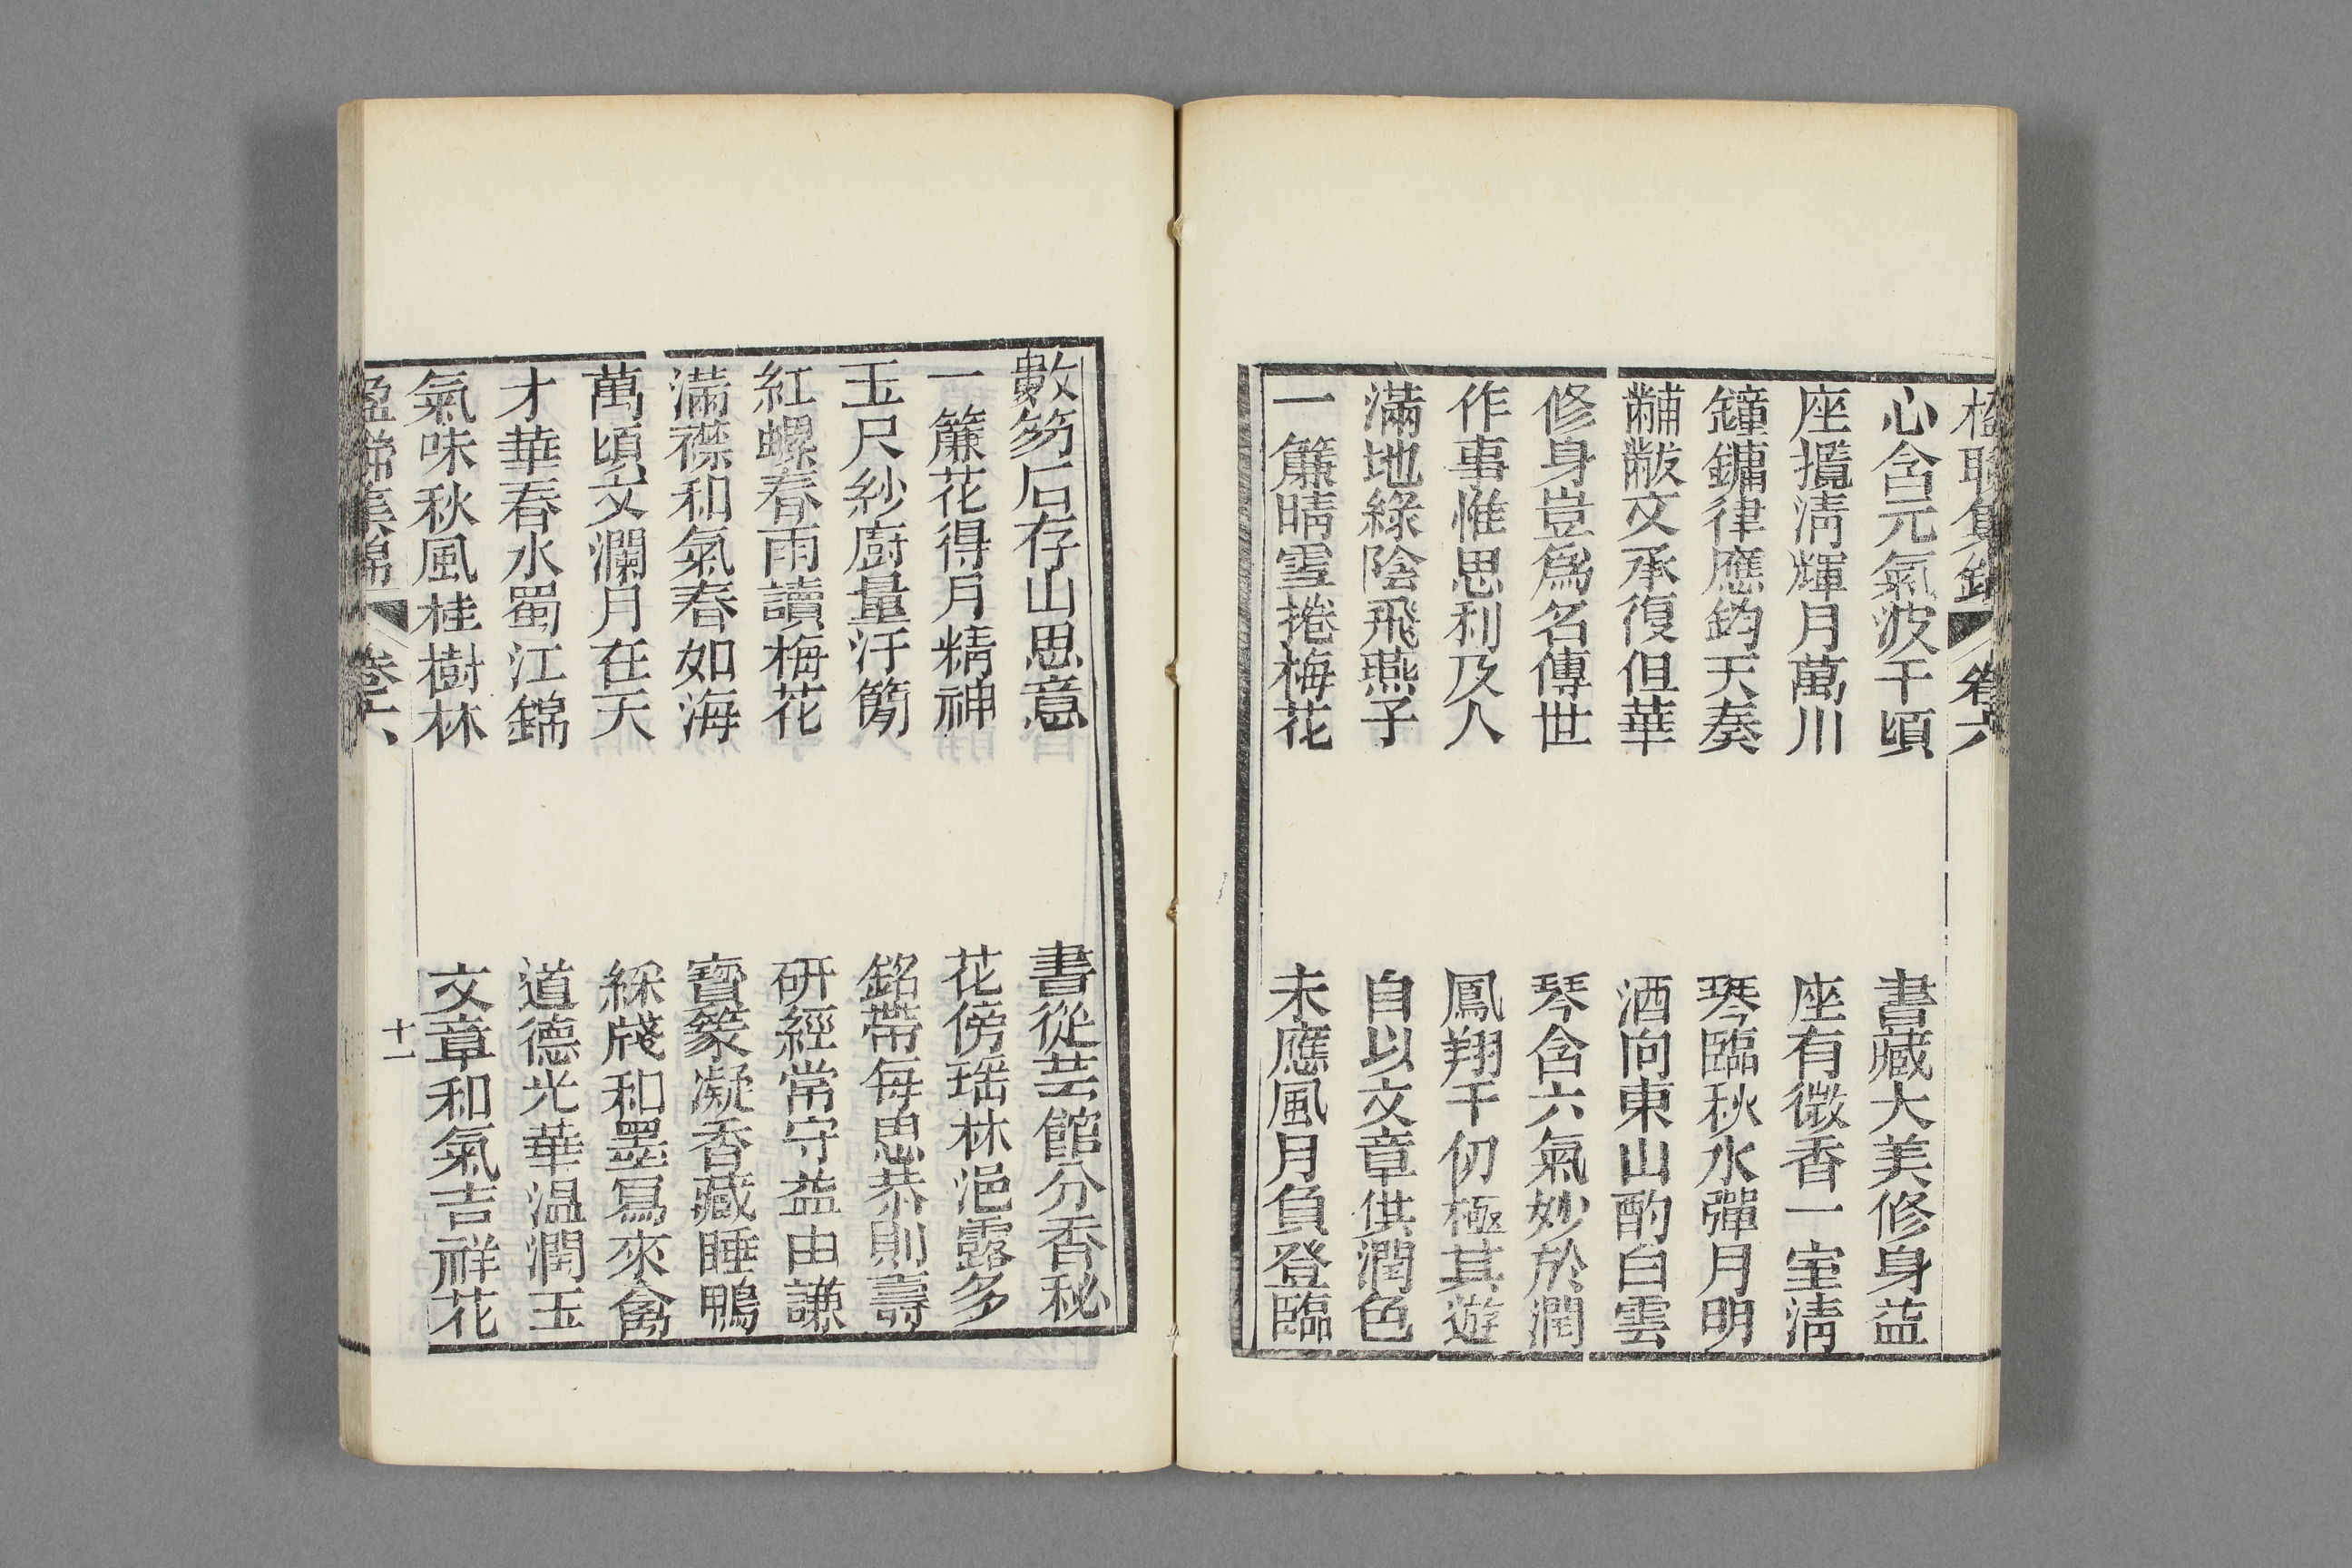 楹聯集錦 卷六
心含元氣波千頃 書藏大美修身益
座攬清輝月萬川 座有微香一室清
鐘鏞律應鈞天奏 琴臨秋水彈月明
黼黻文承復但華 酒向東山酌白雲
修身豈爲名傳世 琴含六氣妙於潤
作事惟思利及人 鳳翔千仞極其遊
滿地綠陰飛燕子 自以文章供潤色
一簾晴雪捲梅花 未應風月負登臨
數笏石存山思意 書從芸館分香秘
一簾花得月精神 花傍瑤林浥露多
玉尺紗廚量汗簡 銘帶每思恭則壽
紅螺春雨讀梅花 研經常守益由謙
滿襟和氣春如海 寶篆凝香藏睡鴨
萬頃文瀾月在天 綵牋和墨寫來禽
才華春水蜀江錦 道德光華温潤玉
氣味秋風桂樹林 文章和氣吉祥花
楹聯集錦 卷六 十一